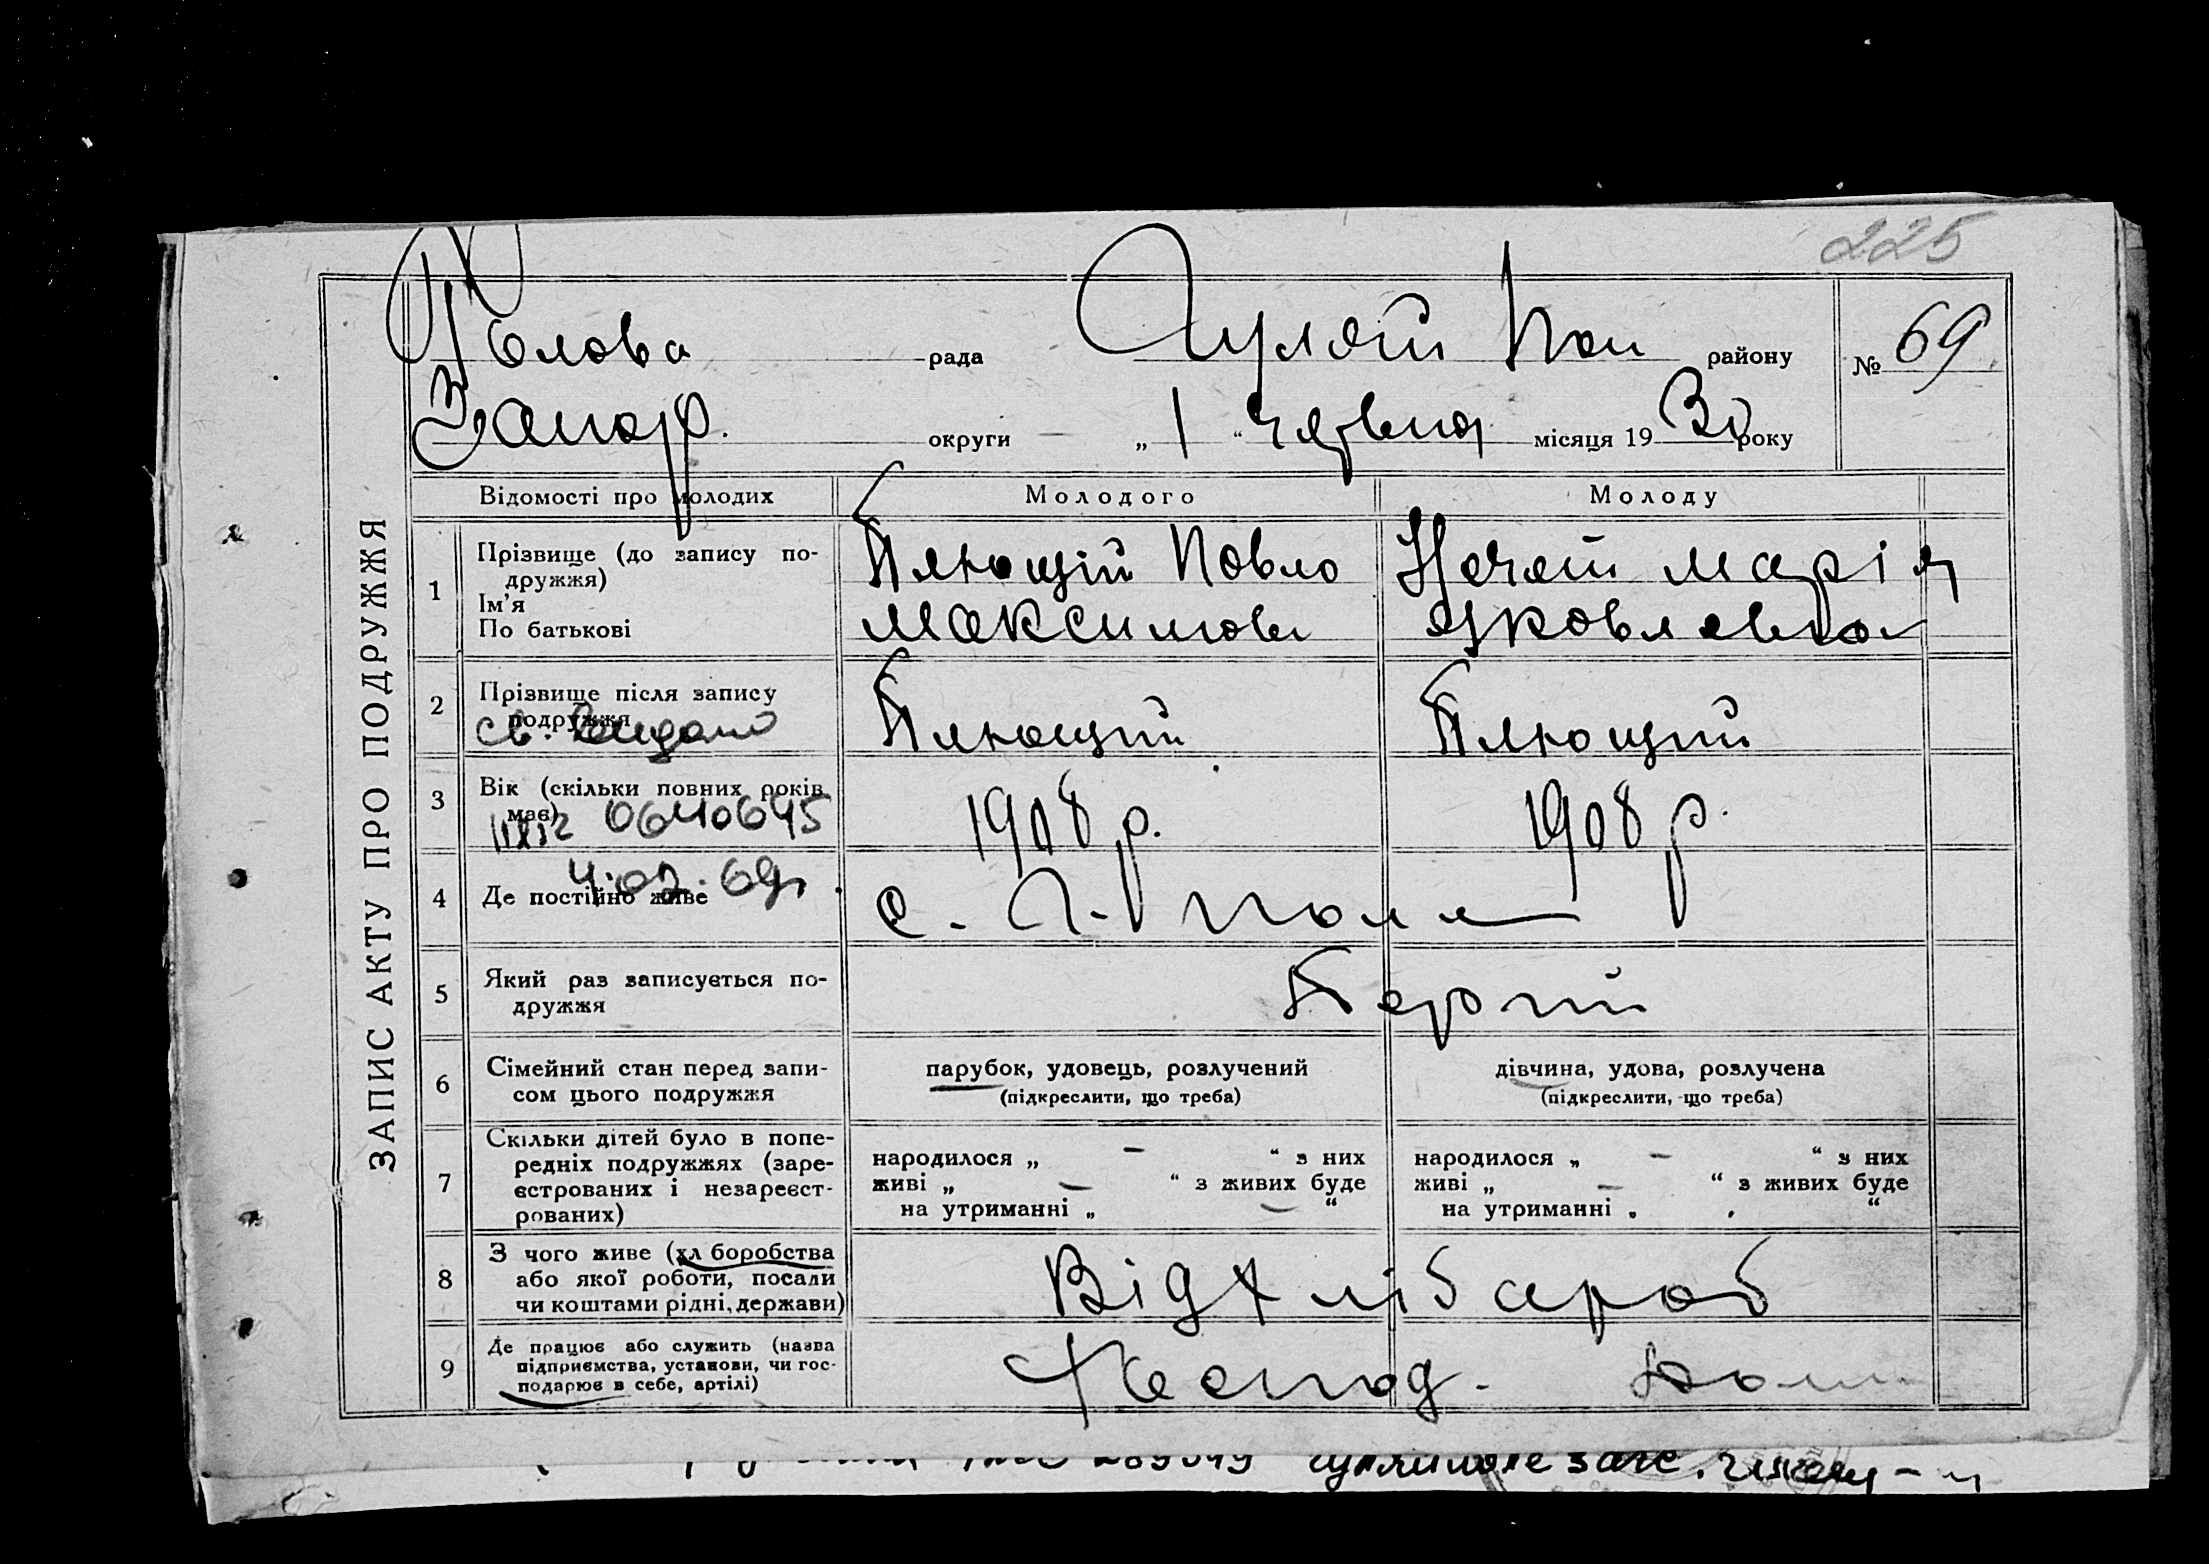 225
Голова рада Гуляй Пол району № 69
Запор. округи „ 1 “ червня місяця 1930 року
ЗАПИС АКТУ ПРО ПОДРУЖЖЯ
Відомості про молодих Молодого Молоду
1 Прізвище (до запису по-
дружжя)
Ім'я
По батькові
Плющій Павло
Максимов
Марія
Яковлевна
2 Прізвище після запису
подружжя
Плющий Плющий
3 Вік (скільки повних років
має)
0640645
1908 р. 1908 р.
4 Де постійно живе
4.02.69г.
с. Г. Поле
5 Який раз записується по-
дружжя
Первий
6 Сімейний стан перед запи-
сом цього подружжя
парубок, удовець, розлучений
(підкреслити, що треба)
дівчина, удова, розлучена
(підкреслити, що треба)
7 Скільки дітей було в попе-
редніх подружжях (заре-
єстрованих і незареєст-
рованих)
народилося „ — “ з них
живі „ — “ з живих буде
на утриманні „ — “
народилося „ — “ з них
живі „ — “ з живих буде
на утриманні „ “
8 З чого живе (хл боробства
або якої роботи, посади
чи коштами рідні, держави)
Від хлібароб
9 Де працює або служить (назва
підприємства, установи, чи гос-
подарює в себе, артілі)
Господ.